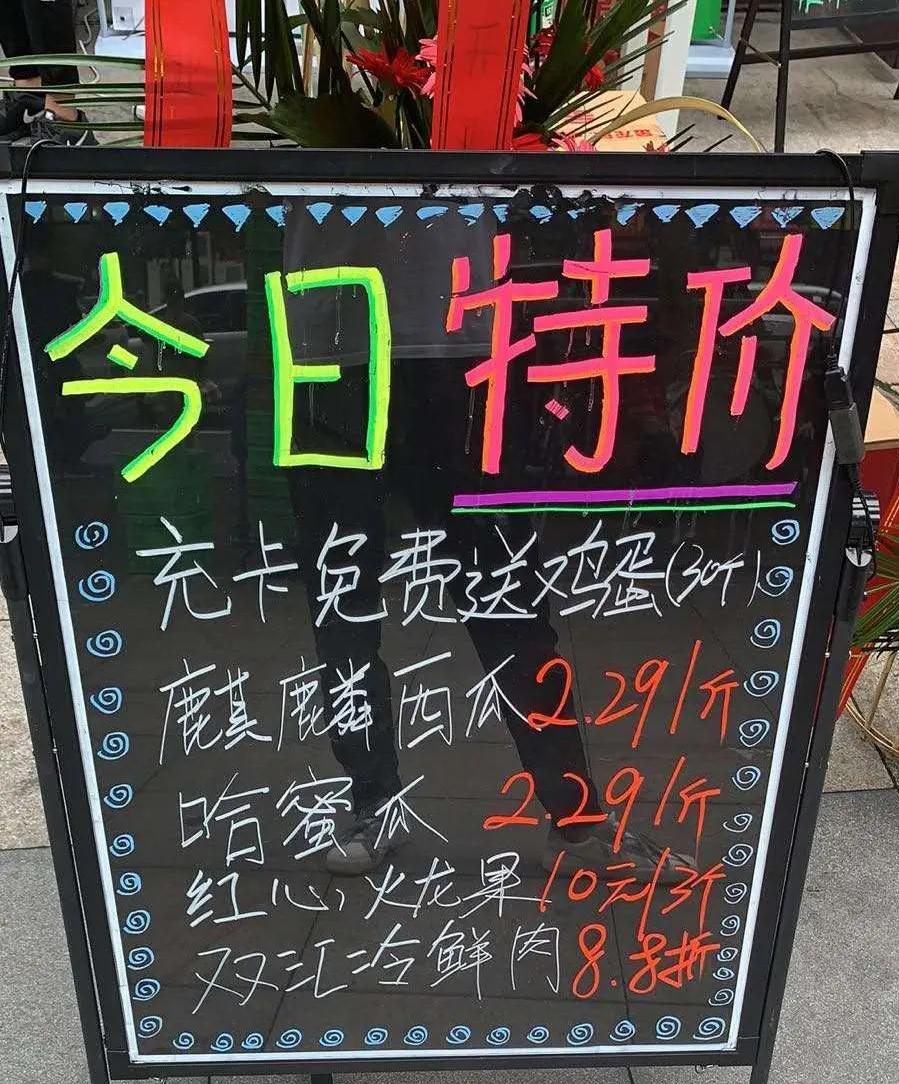 今日特价
充卡免费送鸡蛋(30个)
麒麟西瓜2.29/斤
哈蜜瓜 2.29/斤
红心火龙果10元/3个
双汇冷鲜肉8.8折